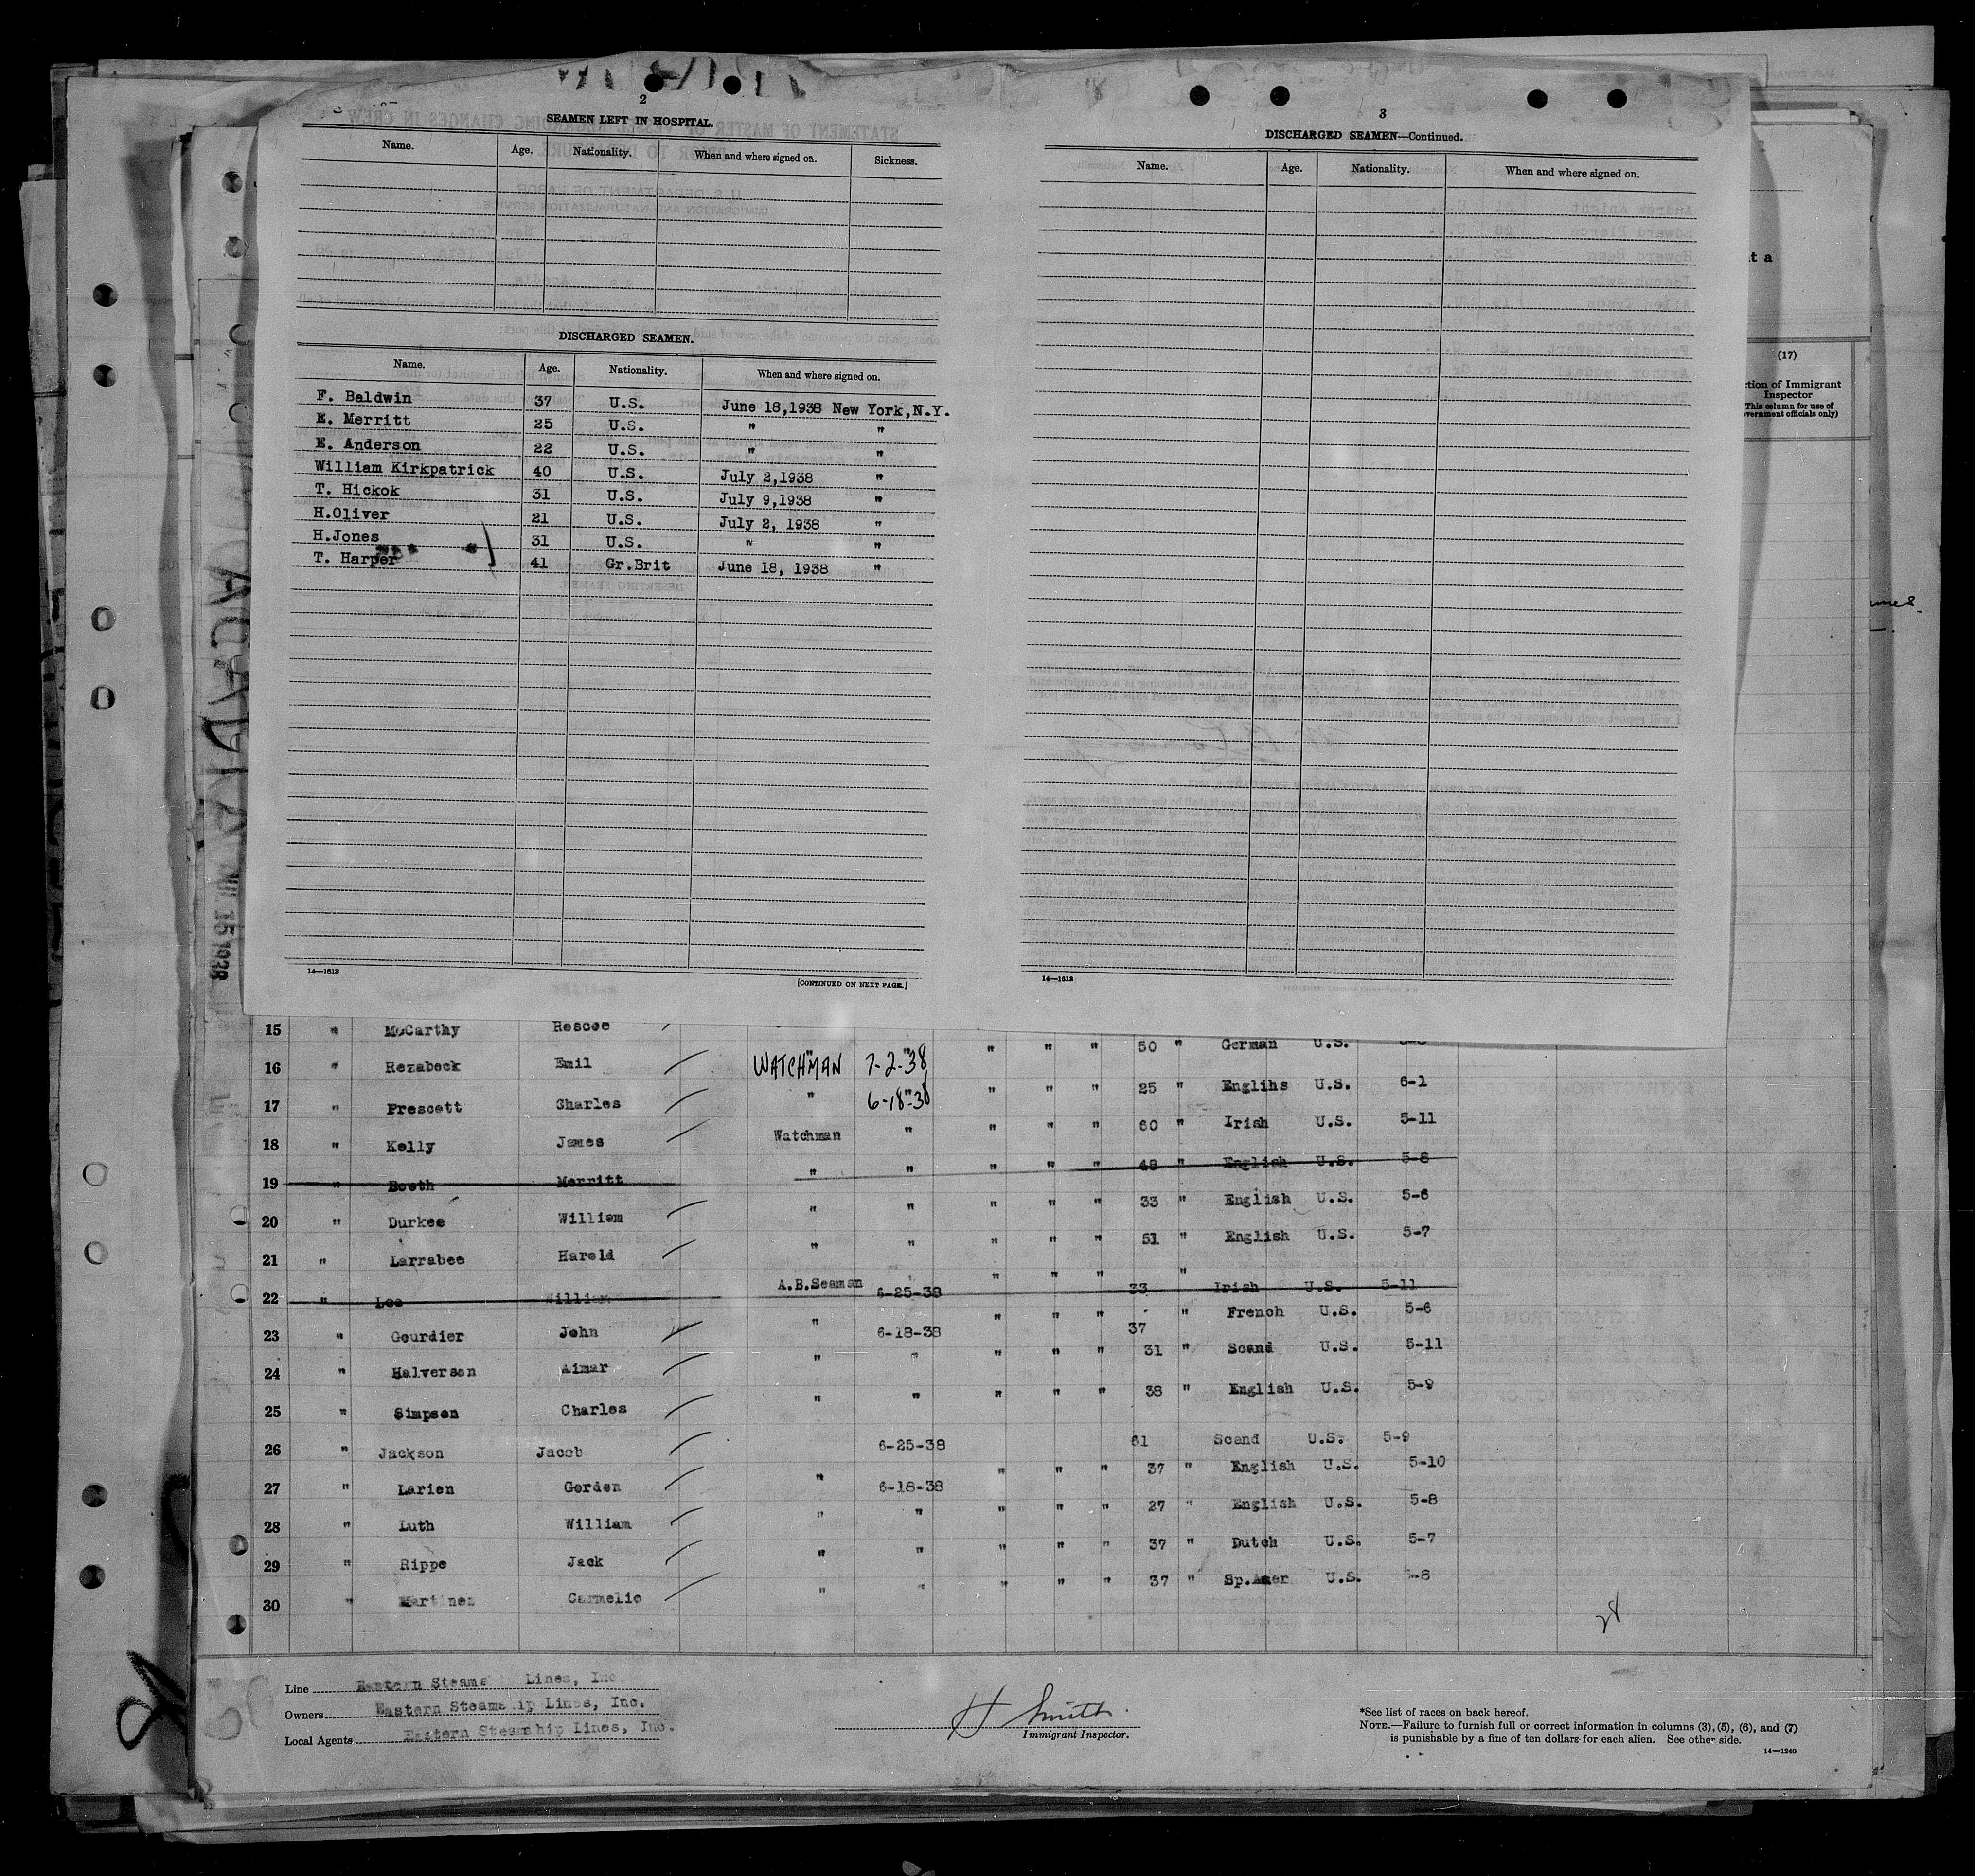 2
SEAMEN LEFT IN HOSPITAL.
Name. Age. Nationality. When and where signed on. Sickness.
DISCHARGED SEAMEN.
Name. Age. Nationality. When and where signed on.
F. Baldwin 37 U.S. June 18,1938 New York,N.Y.
E. Merritt 25 U.S. " "
E. Anderson 22 U.S. " "
William Kirkpatrick 40 U.S. July 2,1938 "
T. Hickok 31 U.S. July 9,1938 "
H.Oliver 21 U.S. July 2, 1938 "
H.Jones 31 U.S. " "
T. Harper 41 Gr.Brit June 18, 1938 "
14—1613
[CONTINUED ON NEXT PAGE.]
3
DISCHARGED SEAMEN—Continued.
Name. Age. Nationality. When and where signed on.
14—1613
t a
(17)
ction of Immigrant
Inspector
This column for use of
vernment officials only)
ACADIA JUL 15 1938
15 " McCarthy Roscoe
16 " Rezabeck Emil WATCHMAN 7-2-38 " " " 50 " German U.S.
17 " Prescott Charles " 6-18-38 " " " 25 " Englihs U.S. 6-1
18 " Kelly James Watchman " " " " 60 " Irish U.S. 5-11
19 " Booth Merritt " " " " " 48 " English U.S. 5-8
20 " Durkee William " " " " " 33 " English U.S. 5-6
21 " Larrabee Harold " " " " " 51 " English U.S. 5-7
22 " Lee William A.B.Seaman 6-25-38 " " " 33 " Irish U.S. 5-11
23 " Gourdier John " 6-18-38 " " " 37 " French U.S. 5-6
24 " Halverson Aimar " " " " " 31 " Scand U.S. 5-11
25 " Simpson Charles " " " " " 38 " English U.S. 5-9
26 " Jackson Jacob 6-25-38 61 Scand U.S. 5-9
27 " Larien Gorden " 6-18-38 " " " 37 " English U.S. 5-10
28 " Luth William " " " " " 27 " English U.S. 5-8
29 " Rippe Jack " " " " " 37 " Dutch U.S. 5-7
30 " Martinez Carmelio " " " " " 37 " Sp.Amer U.S. 5-8
28
Line Eastern Steams Lines, Inc
Owners Eastern Steamship Lines, Inc.
Local Agents Eastern Steamship Lines, Inc.
H Smith
Immigrant Inspector.
*See list of races on back hereof.
NOTE.—Failure to furnish full or correct information in columns (3), (5), (6), and (7)
is punishable by a fine of ten dollars for each alien. See other side.
14—1240